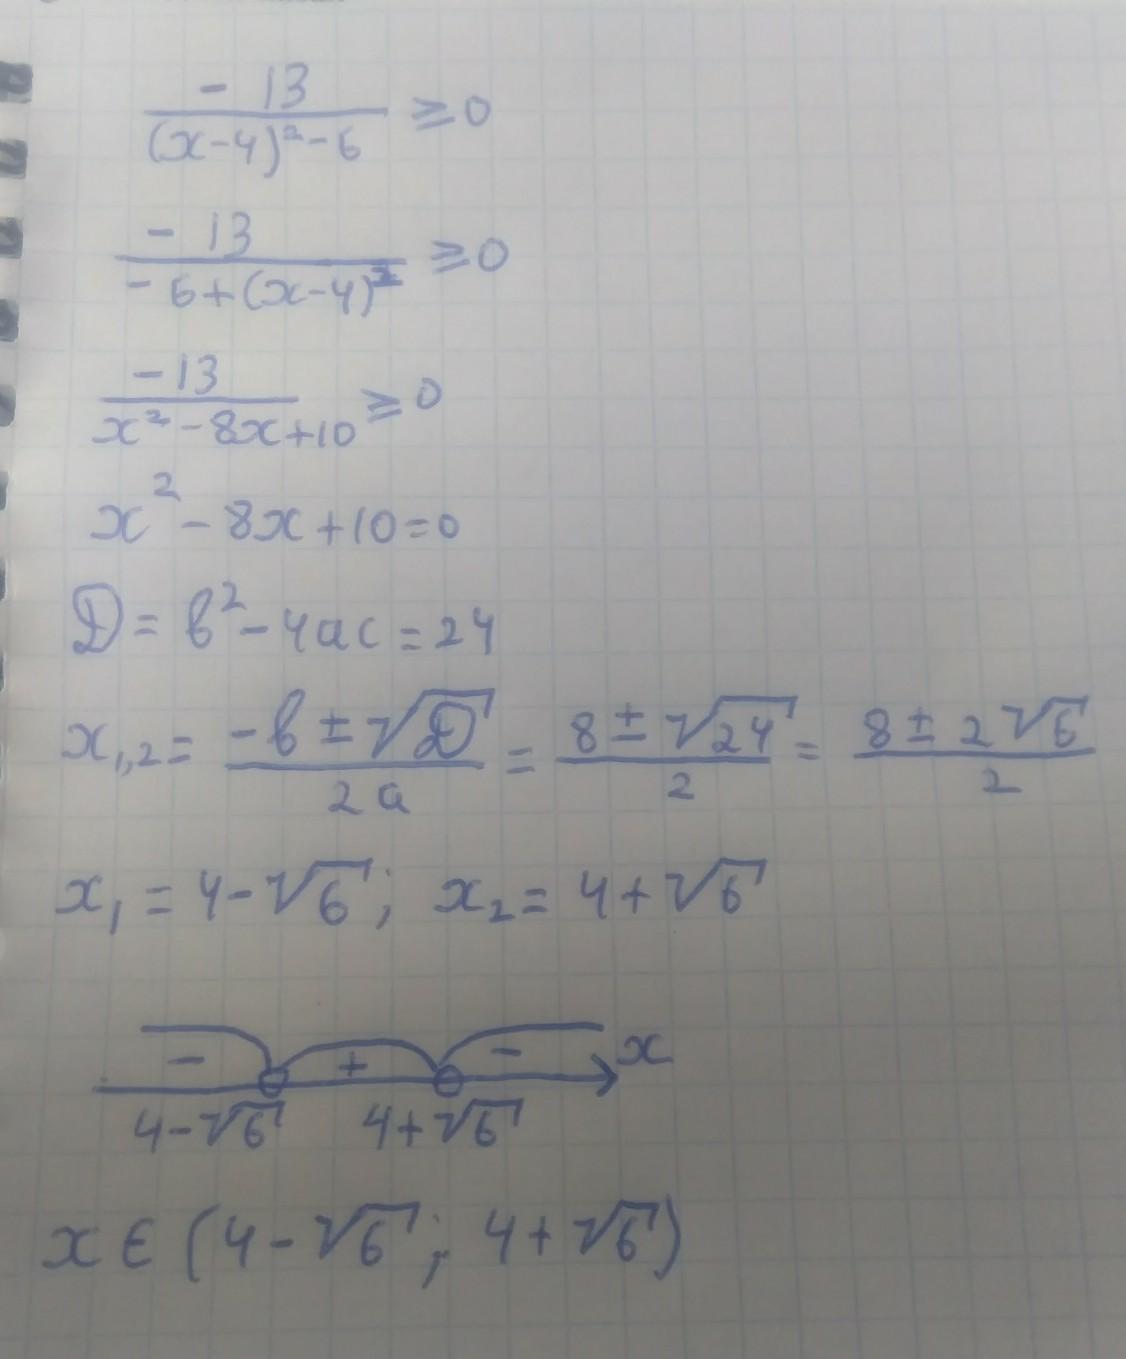 - 13 / (x-4)² - 6 ≥ 0
- 13 / - 6 + (x-4)² ≥ 0
-13 / x² - 8x + 10 ≥ 0
x² - 8x + 10 = 0
D = b² - 4ac = 24
x₁,₂ = -b ± √D / 2a = 8 ± √24 / 2 = 8 ± 2√6 / 2
x₁ = 4 - √6 ; x₂ = 4 + √6
- + - x
4-√6 4+√6
x ∈ (4 - √6 ; 4 + √6)